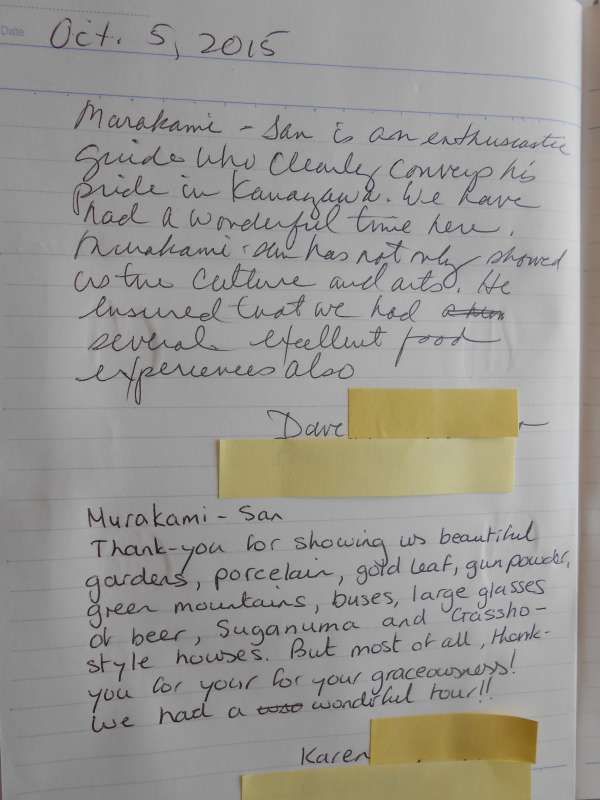 Date
Oct. 5, 2015
Murakami - San is an enthusiastic
guide who clearly conveys his
pride in Kanazawa. We have
had a wonderful time here.
Murakami-san has not only showed
us the culture and arts. He
ensured that we had
several excellent food
experiences also
Dave
Murakami - San
Thank-you for showing us beautiful
gardens, porcelain, gold leaf, gun powder,
green mountains, buses, large glasses
of beer, Suganuma and Grassho-
style houses. But most of all, thank-
you for your for your graceousness!
We had a wonderful tour!!
Karen